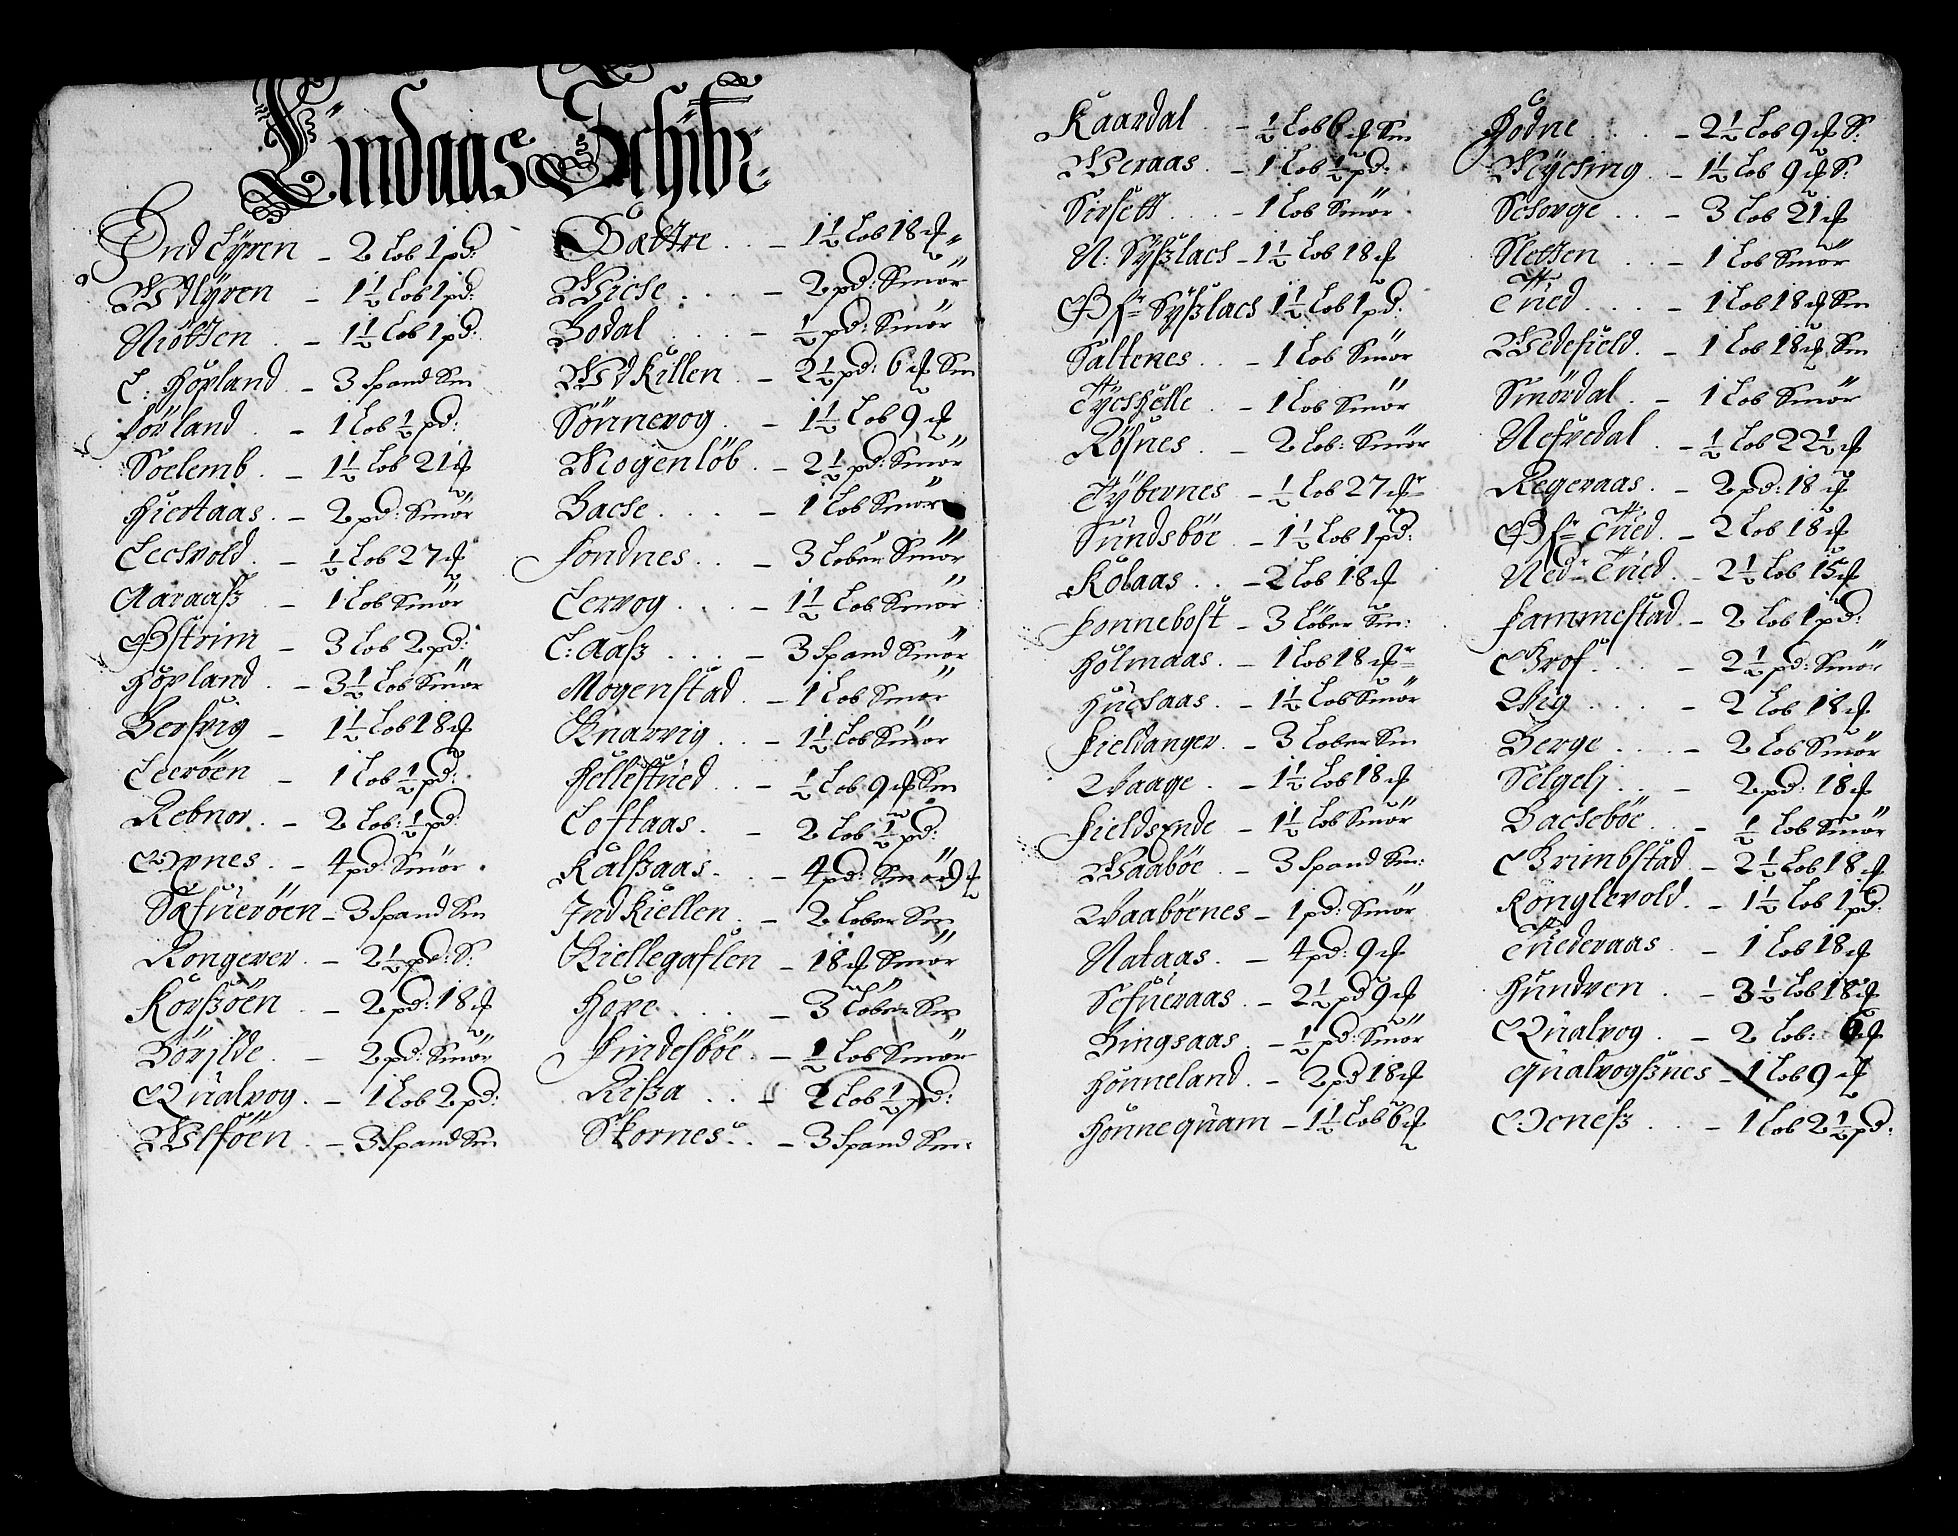 Lindaas Schibr:
Ind Lÿren - 2 Lob 1 pd:
Wdlÿren - 1½ Lob 1 pd:
Niøtten - 1½ Lob 1 pd:
L: Høyland - 3 Spand Sm
Førland - 1 Lob ½ pd:
Soelemb - 1½ Lob 21 ℔
Hiertaas - 2 pd: Smör
Lechvold - ½ Lob 27 ℔
Aaraass - 1 Lob Smör
Østrim - 3 Lob 2 pd:
Høyland - 3½ Lob Smör
Berfvig - 1½ Lob 18 ℔
Leerøen - 1 Lob ½ pd:
Rebnor - 2 Lob: ½ pd:
Øvnes - 4 pd: Smör
Sæfuerøen - 3 Spand Sm
Rongever - 2½ pd: S:
Korssøen - 2 pd: 18 ℔
Börjlde - 2 pd: Smör
Qualvog - 1 Lob 2 pd:
Wlföen - 3 Spand Sm
Sættre - 1½ Lob 18 ℔
Wiche - 2 pd: Smör
Bodal - ½ pd: Smör
Wdkillen - 2½ pd: 6 ℔ Sm
Sønnevog - 1½ Lob 9 ℔
Mogenlöb - 2½ pd: Smör
Bache - 1 Lob Smör
Fondnes - 3 Lober Smör
Lervog - 1½ Lob Smör
L: Aass - 3 Spand Smör
Mogenstad - 1 Lob Smör
Knarvig - 1½ Lob Smör
Hellestued - ½ Lob 9 ℔ Sm
Loftaas - 2 Lob ½ pd:
Kalssaas - 4 pd: Smör 9 ℔
Ind Kiellen - 2 Lober Sm
Kiellegaflen - 18 ℔ Smör
Hope - 3 Lober Sm
Findesböe - ½ Lob Smör
Rissa - 2 Lob ½ pd:
Skornes - 3 Spand Sm:
Kaardal - ½ Lob 6 ℔ Sm
Weraas - 1 Lob ½ pd:
Sirsett - 1 Lob Smör
N: Sÿsslach - 1½ Lob 18 ℔
Øfr Sÿsslach 1½ Lob 1 pd:
Saltenes - 1 Lob Smör
Tÿeshelle - 1 Lob Smör
Røsnes - 2 Lob: Smör
Tÿbernes - ½ Lob 27 ℔
Sundsböe - 1½ Lob 1 pd:
Kolaas - 2 Lob 18 ℔
Fonnebost - 3 Löber Sm:
Holmaas - 1 Lob 18 ℔
Huchaas - 1½ Lob Smör
Fieldanger - 3 Lober Sm
Waage - 1½ Lob 18 ℔
Fieldsende - 1½ Lob Smör
Waaböe - 3 Spand Sm:
Waaböenes - 1 pd: Smör
Nataas - 4 pd: 9 ℔
Sefueraas - 2½ pd 9 ℔
Bingsaas - ½ pd: Smör
Hønneland - 2 pd 18 ℔
Hønnequam - 1½ Lob 6 ℔
Hodne - 2½ Lob 9 ℔ S:
Weÿesing - 1½ Lob 9 ℔ S:
Schorge - 3 Lob 21 ℔
Sletten - 1 Lob Smör
Tued - 1 Lob 18 ℔ Sm
Wedefield - 1 Lob 18 ℔ Sm
Smördal - 1 Lob Smör
Nefredal - ½ Lob 22½ ℔
Regeraas - 2 pd: 18 ℔
Øfr Tued - 2 Lob 18 ℔
Ned Tued - 2½ Lob 15 ℔
Fammestad - 2 Lob 1 pd:
Grof - 2½ pd: Smör
Wig - 2 Lob 18 ℔
Berge - 2 Lob Smör
Selgelj - 2 pd: 18 ℔
Bacheböe - ½ Lob Smör
Grimbstad - 2½ Lob 18 ℔
Konglevold - 1½ Lob 1 pd:
Tuederaas - 1 Lob 18 ℔
Hundven - 3½ Lob 18 ℔
Qualvog - 2 Lob: 6 ℔
Qualvogssnes - 1 Lob 9 ℔
Oeness - 1 Lob 2½ pd: